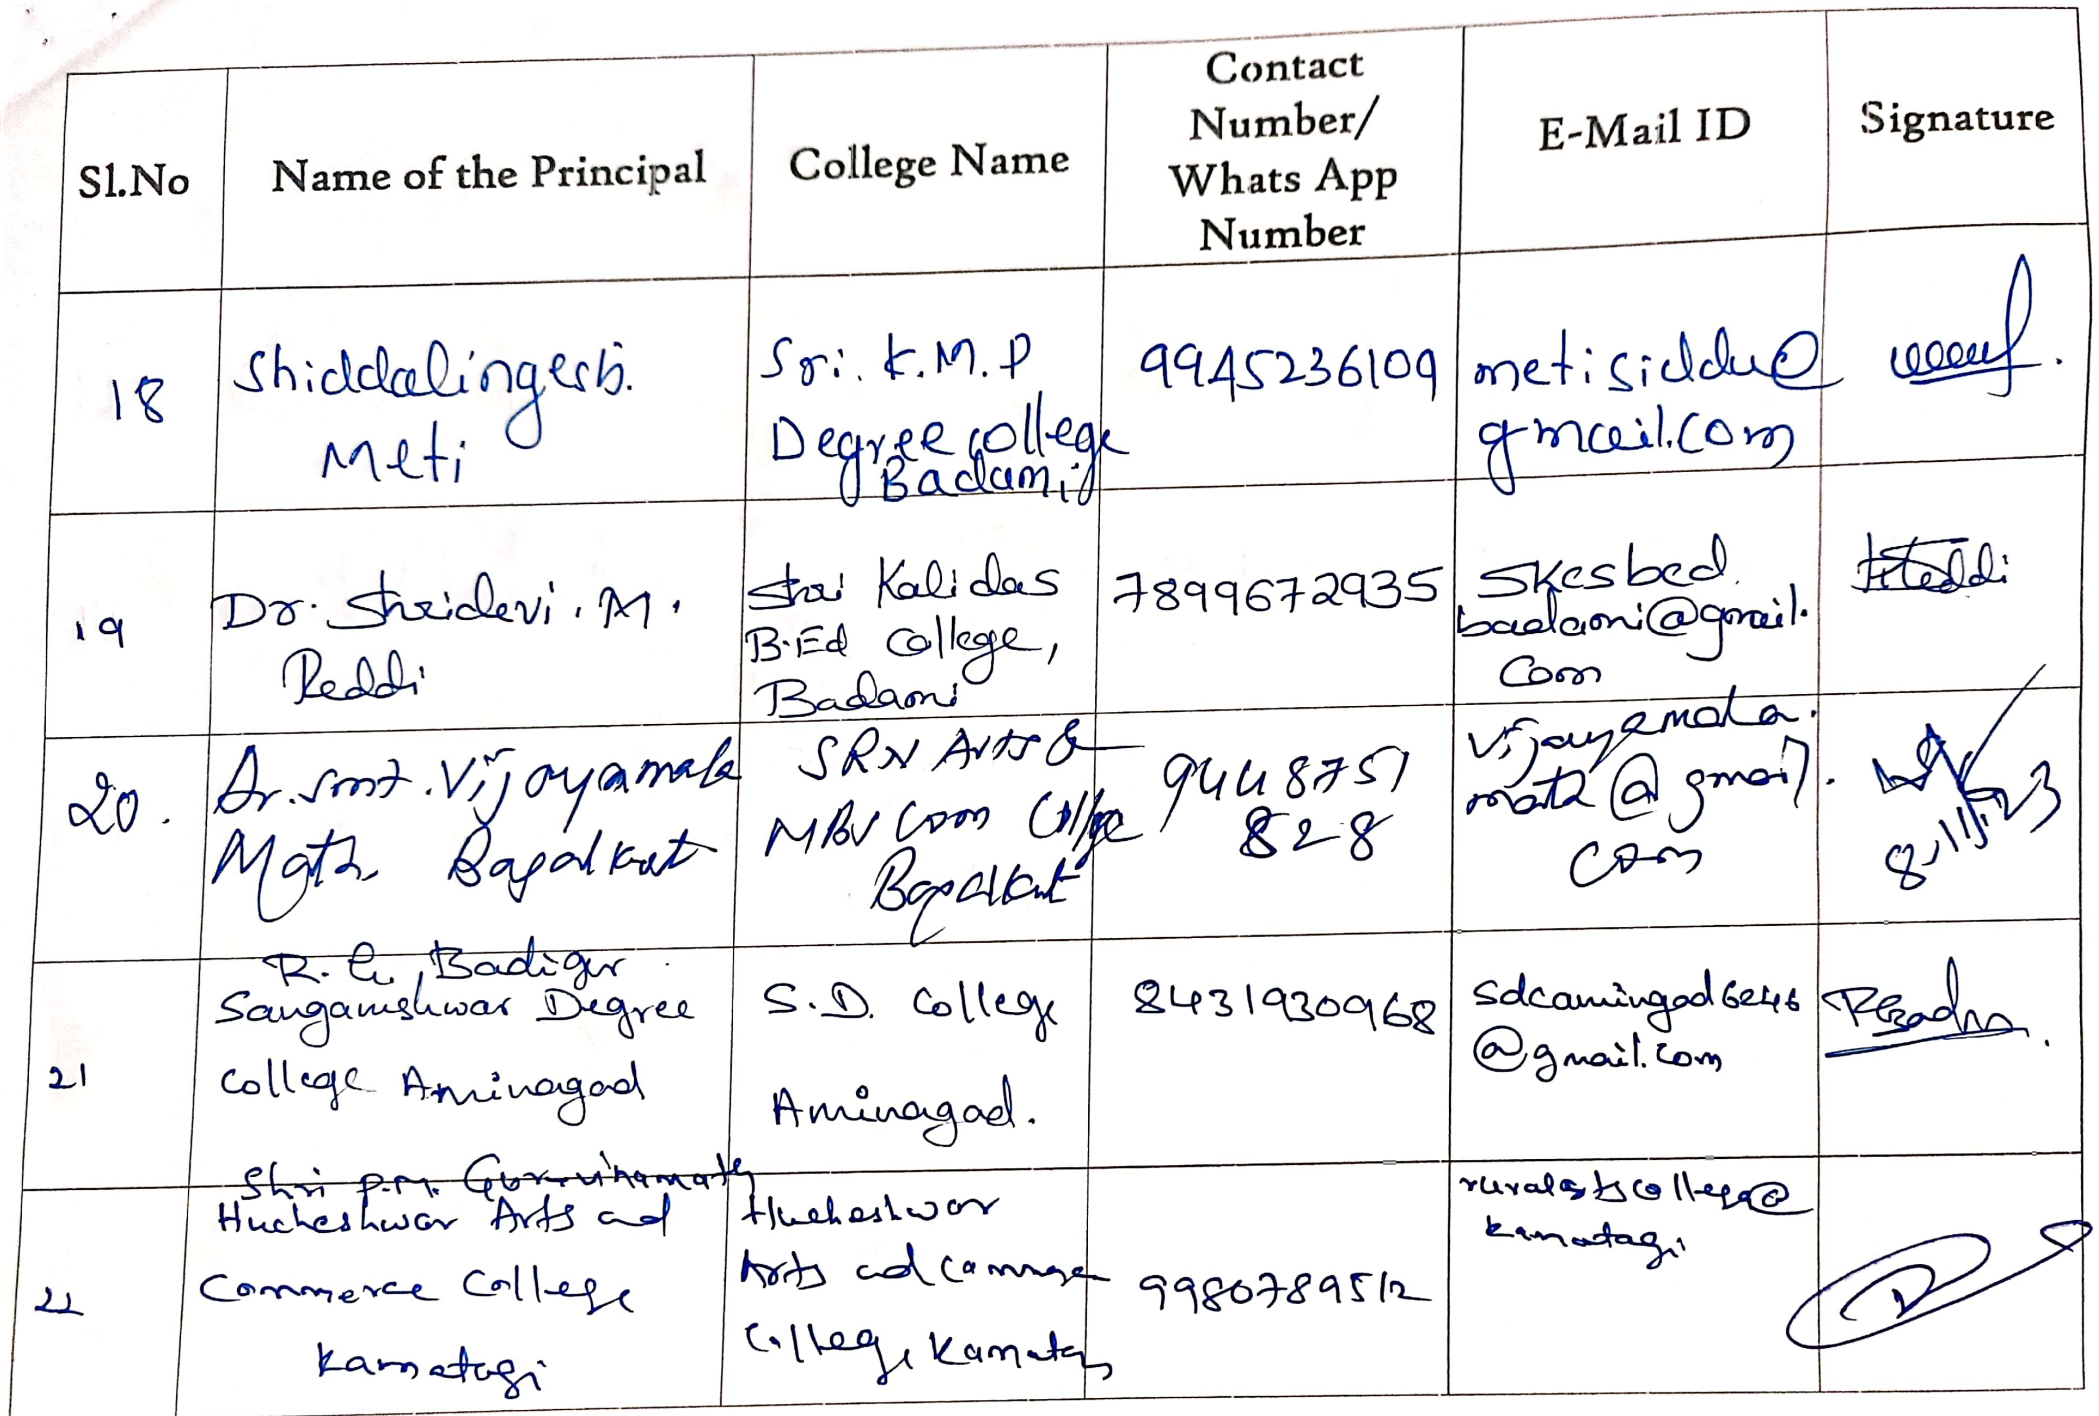 Sl.No
Name of the Principal
College Name
Contact
Number/
Whats App
Number
E-Mail ID
Signature
18
Shiddalingesh.
Meti
Sri. K.M.P
Degree college
Badami
9945236109
metisiddu@
gmail.com
19
Dr. Shridevi. M.
Reddi
Shri Kalidas
B.Ed College,
Badami
7899672935
skesbed.
badami@gmail.
com
20.
Dr. Smt. Vijayamala
Math Bagalkot
SRN Arts &
MBV Com College
Bagalkot
9448751
828
Vijayamala.
math@gmail.
com
21
R. G. Badiger
Sangameshwar Degree
College Aminagad
S.D. College
Aminagad.
8431930968
sdcamingad6246
@gmail.com
22
Shri P.M. Guruvinamath
Hucheshwar Arts and
Commerce College
Kamatagi
Hucheshwar
Arts and Commerce
College Kamatagi
9980789512
ruralartscollege@
kamatagi